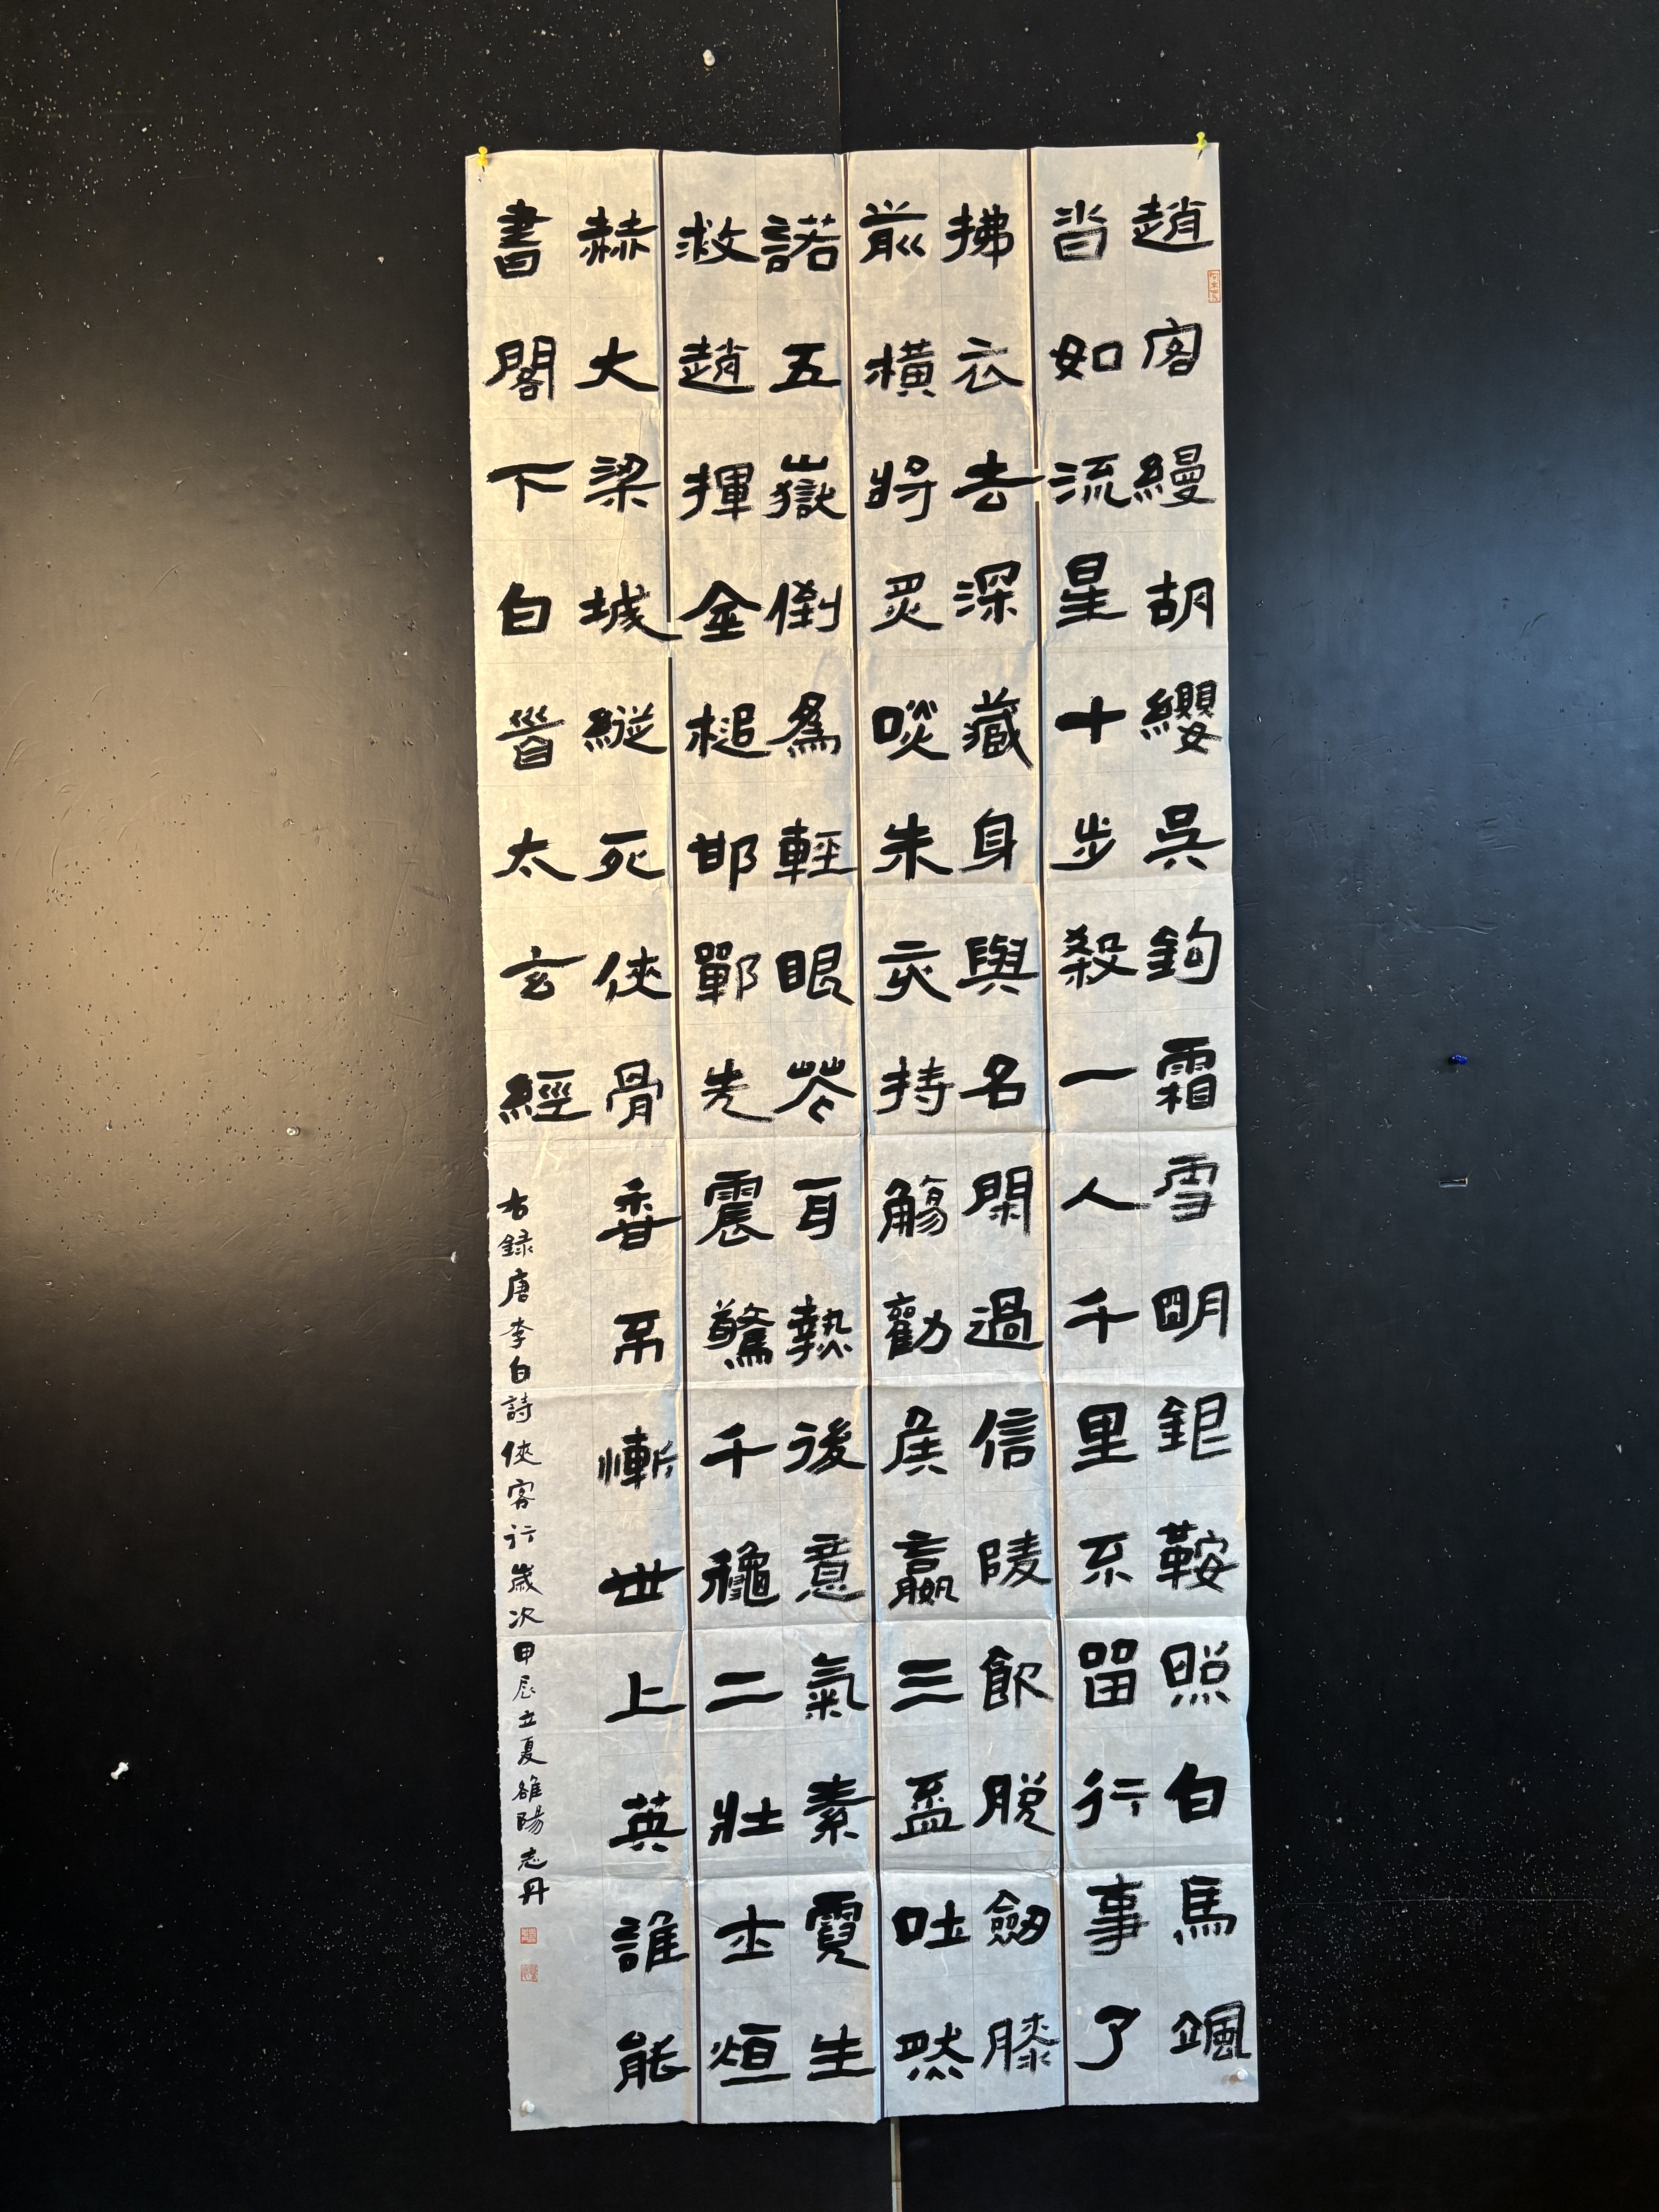 趙客縵胡纓吳鉤霜雪明銀鞍照白馬颯
沓如流星十步殺一人千里不留行事了
拂衣去深藏身與名閑過信陵飲脫劒膝
前橫將炙啖朱亥持觴勸侯嬴三盃吐然
諾五嶽倒爲輕眼花耳熱後意氣素霓生
救趙揮金槌邯鄲先震驚千龝二壯士烜
赫大梁城縱死俠骨香不慚世上英誰能
書閣下白首太玄經
右録唐李白詩俠客行歲次甲辰立夏雒陽志丹